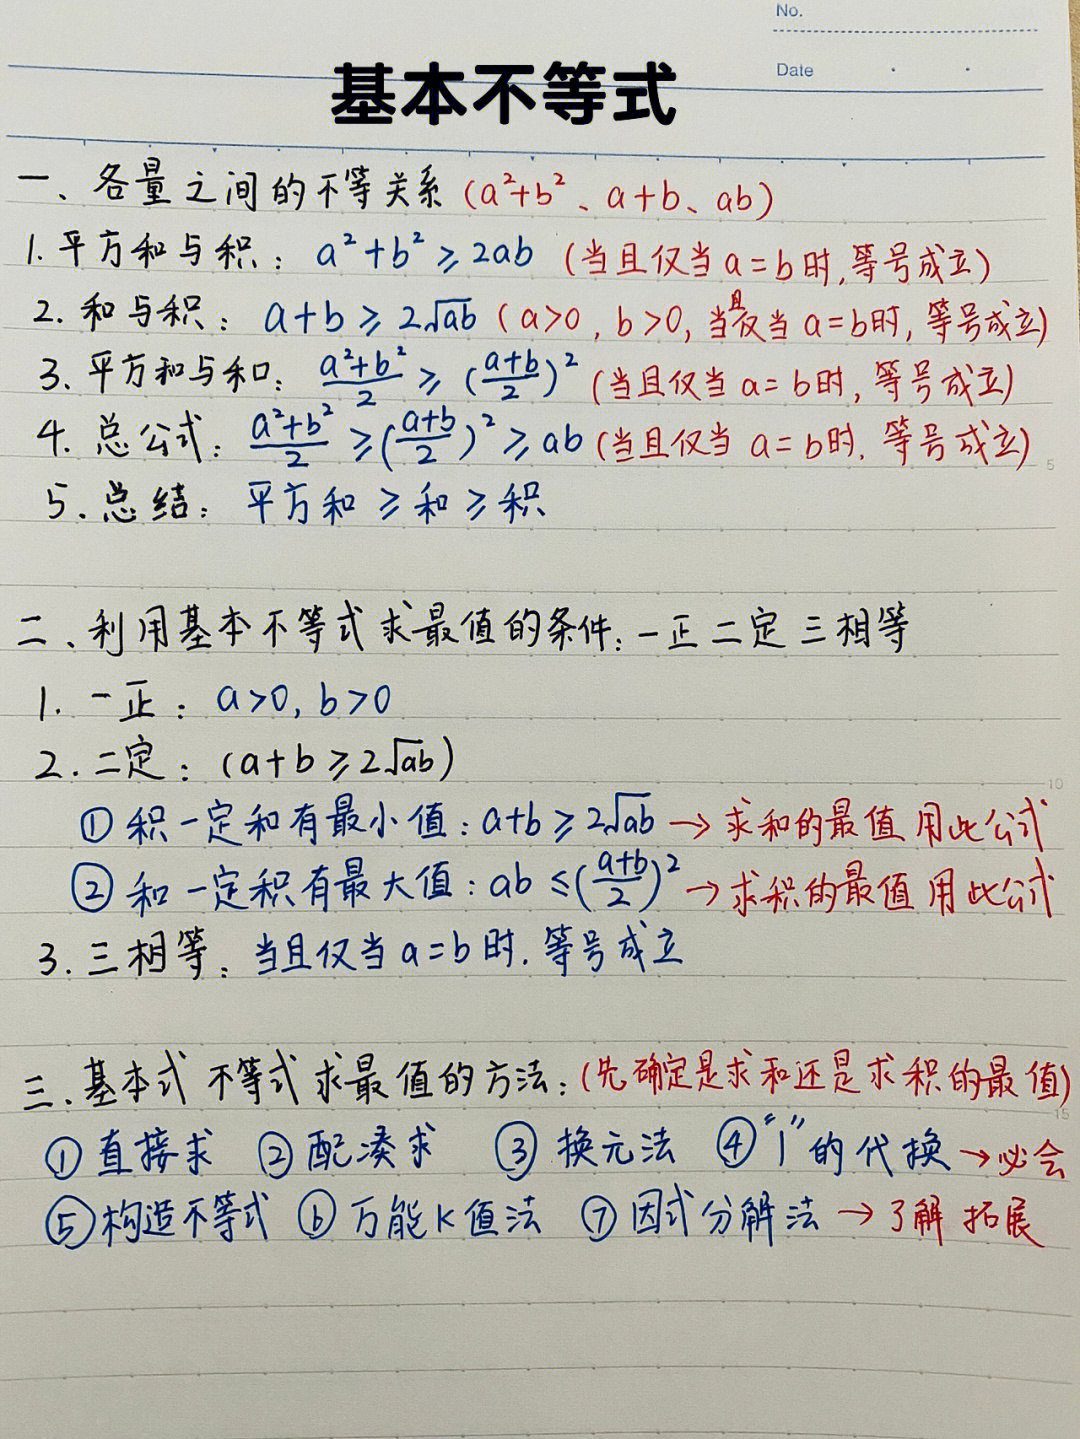 No.
Date
基本不等式
一、各量之间的不等关系(a²+b²、a+b、ab)
1.平方和与积：a²+b²≥2ab (当且仅当a=b时,等号成立)
2.和与积：a+b≥2√ab (a>0,b>0,当且仅当a=b时,等号成立)
3.平方和与和：(a²+b²)/2≥((a+b)/2)² (当且仅当a=b时,等号成立)
4.总公式：(a²+b²)/2≥((a+b)/2)²≥ab (当且仅当a=b时,等号成立)
5
5.总结：平方和≥和≥积
二、利用基本不等式求最值的条件:一正二定三相等
1.一正：a>0,b>0
2.二定：(a+b≥2√ab)
10
①积一定和有最小值:a+b≥2√ab→求和的最值用此公式
②和一定积有最大值:ab≤((a+b)/2)²→求积的最值用此公式
3.三相等：当且仅当a=b时.等号成立
三.基本式不等式求最值的方法:(先确定是求和还是求积的最值)
15
①直接求 ②配凑求 ③换元法 ④“1”的代换→必会
⑤构造不等式 ⑥万能K值法 ⑦因式分解法→了解拓展